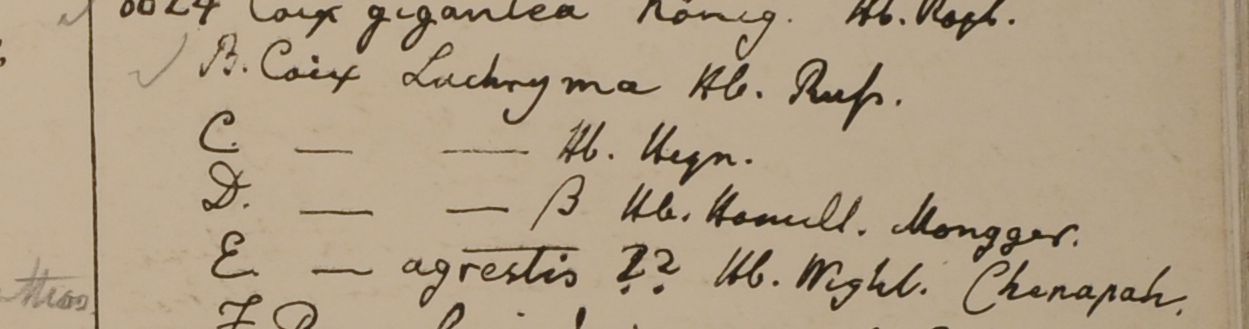 Coix gigantea König. Hb. Roxb.
B. Coix Lachryma Hb. Russ.
C. — — Hb. Heyn.
D. — — β Hb. Hamill. Mongger.
E. — agrestis ?? Hb. Wight. Chenapah.